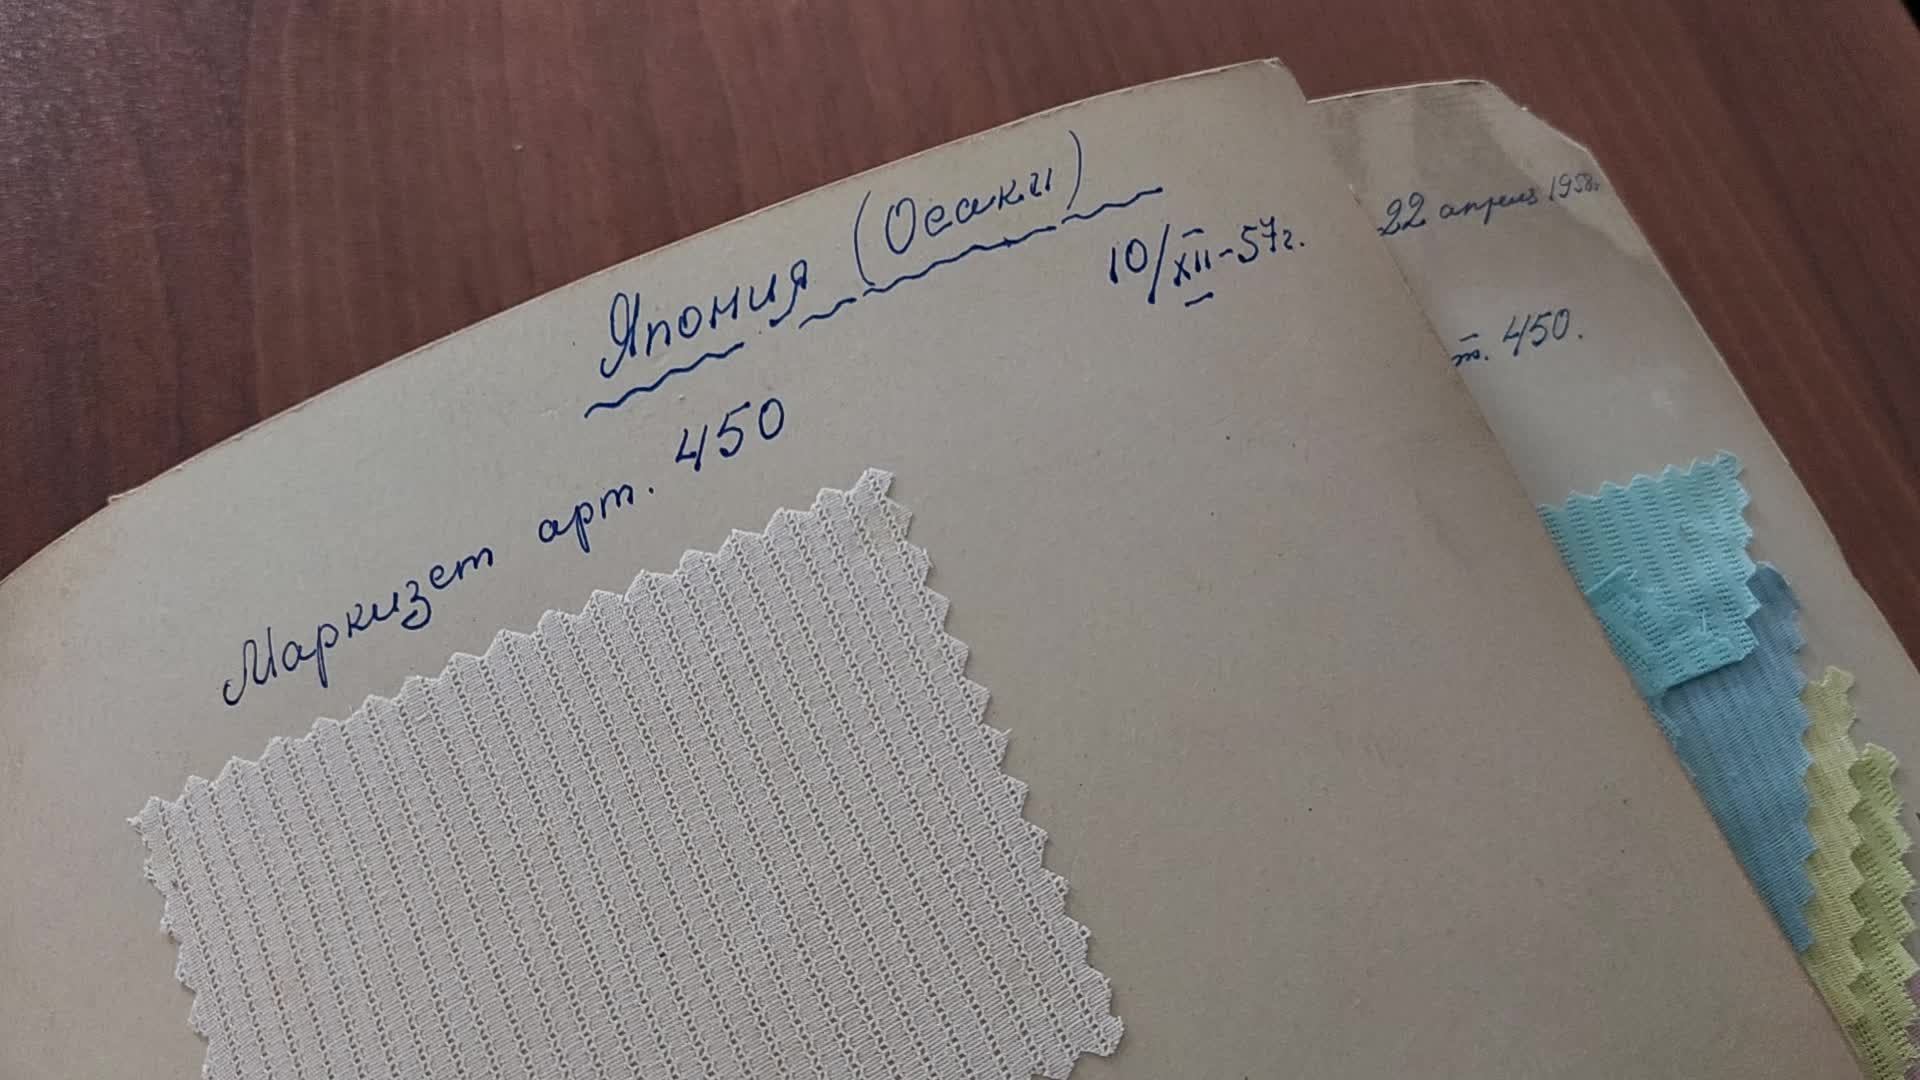 Япония (Осаки)
10/XII-57г.
Маркизет арт. 450
22 апреля 1958г.
т. 450.